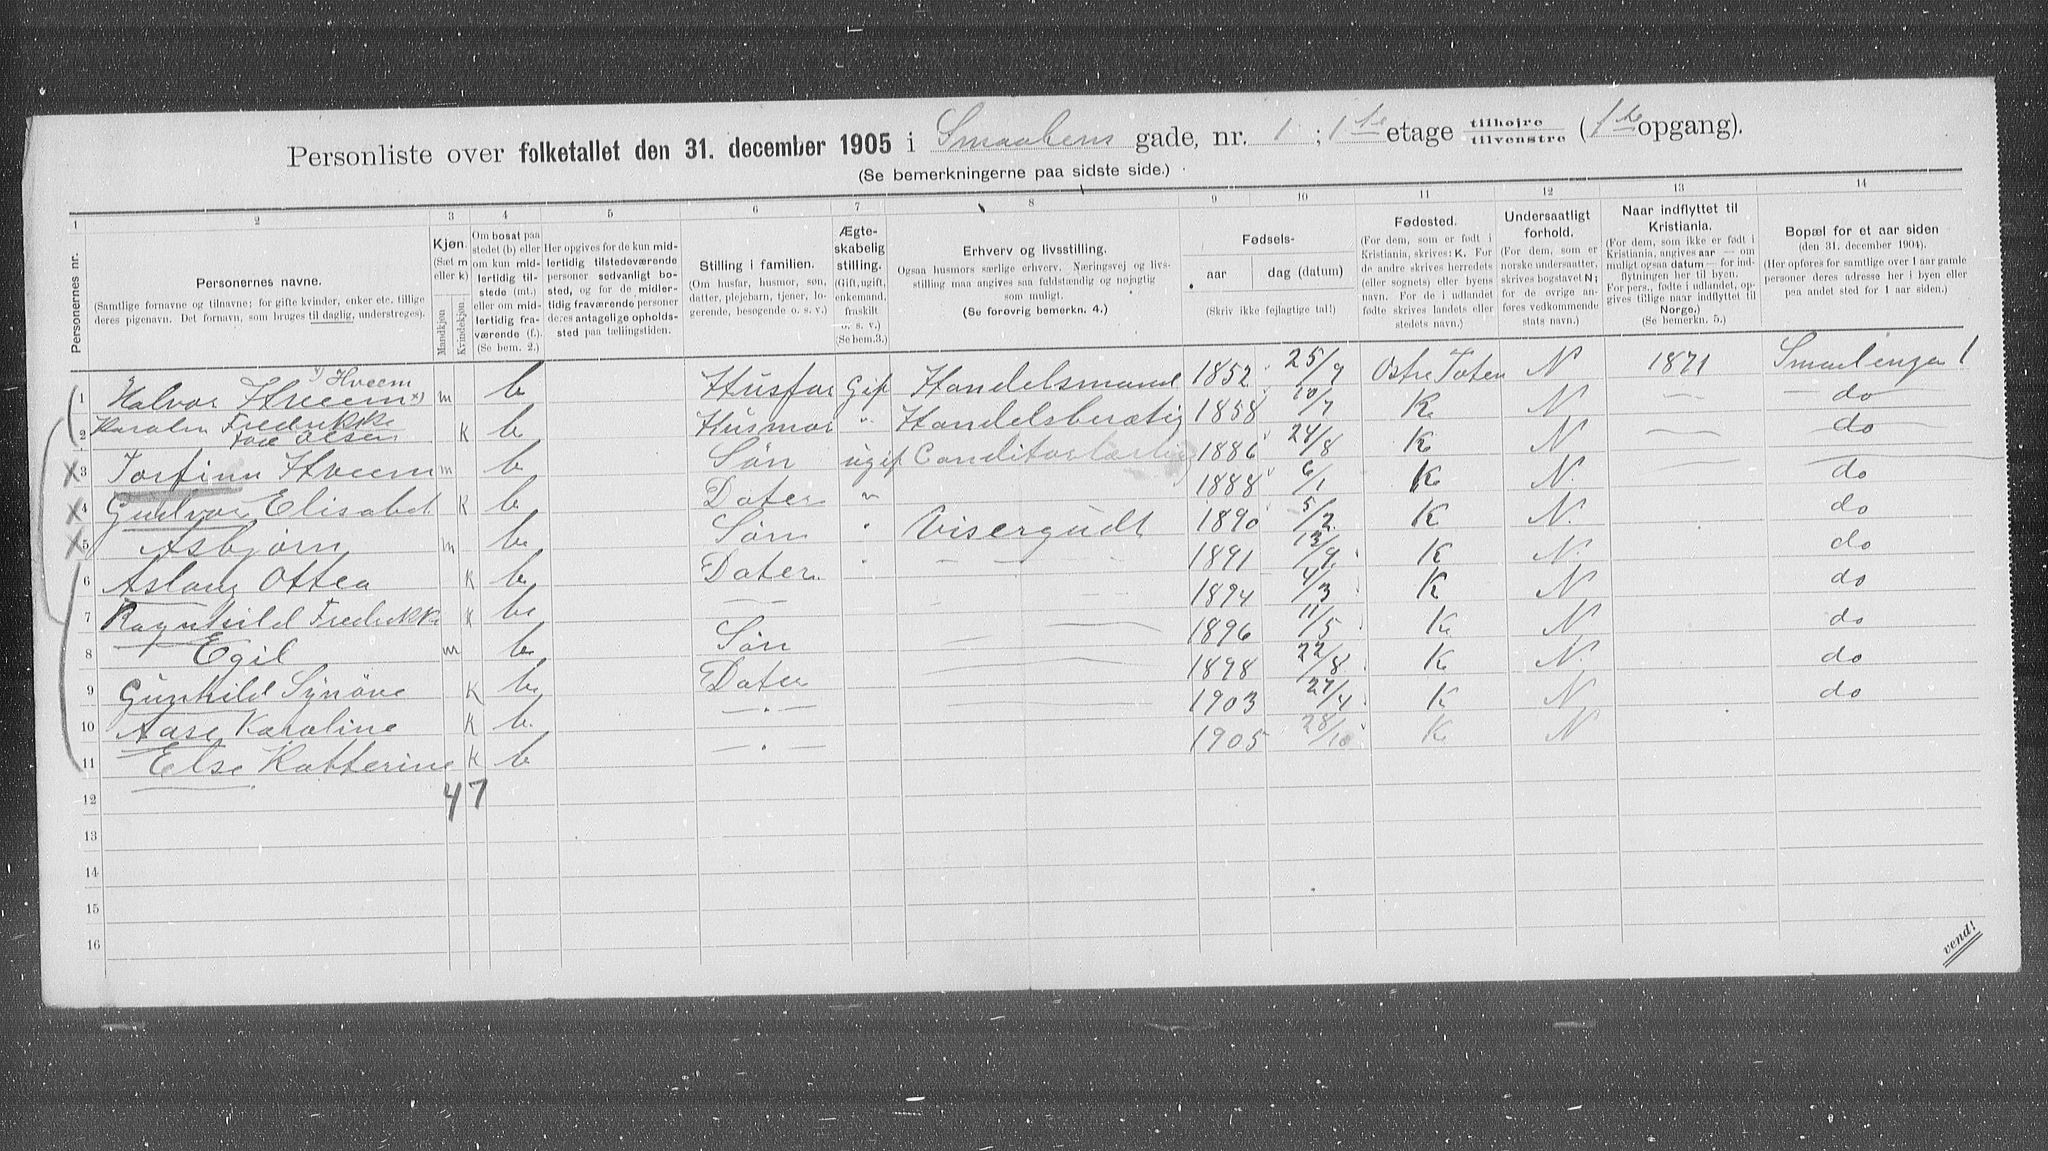 Personliste over folketallet den 31. december 1905 i Smaalens gade, nr. 1 ; 1ste etage tilhøjre tilvenstre (1ste opgang).
(Se bemerkningerne paa sidste side.)
1 2 3 4 5 6 7 8 9 10 11 12 13 14
Personernes nr.
Personernes navne.
(Samtlige fornavne og tilnavne; for gifte kvinder, enker etc. tillige deres pigenavn. Det fornavn, som bruges til daglig, understreges).
Kjøn. (Sæt m eller k)
Mandkjøn
Kvindekjøn
Om bosat paa stedet (b) eller om kun midlertidig tilstede (mt.) eller om midlertidig fraværende (f.). (Se bem. 2.)
Her opgives for de kun midlertidig tilstedeværende personer sedvanligt bosted, og for de midlertidig fraværende personer deres antagelige opholdssted paa tællingstiden.
Stilling i familien.
(Om husfar, husmor, søn, datter, plejebarn, tjener, logerende, besøgende o. s. v.)
Ægteskabelig stilling.
(Gift, ugift, enkemand, fraskilt o. s. v.) (Se bem.3.)
Erhverv og livsstilling.
Ogsaa husmors særlige erhverv. Næringsvej og livsstilling maa angives saa fuldstændig og nøjagtig som muligt.
(Se forøvrig bemerkn. 4.)
Fødsels-
aar
dag (datum)
(Skriv ikke fejlagtige tal!)
Fødested.
(For dem, som er født i Kristiania, skrives: K. For de andre skrives herredets (eller sognets) eller byens navn. For de i udlandet fødte skrives landets eller stedets navn.)
Undersaatligt forhold.
(For dem, som er norske undersaatter, skrives bogstavet N; for de øvrige anføres vedkommende stats navn.)
Naar indflyttet til Kristiania.
(For dem, som ikke er født i Kristiania, angives aar — om muligt ogsaa datum — for indflytningen her til byen. For pers., fødte i udlandet, opgives tillige naar indflyttet til Norge.) (Se bemerkn. 5.)
Bopæl for et aar siden
(den 31. december 1904).
(Her opføres for samtlige over 1 aar gamle personer deres adresse her i byen eller paa andet sted for 1 aar siden.)
x) Hveem
1 Halvor Hveem x) m b Husfar Gift Handelsmand 1852 25/9 Østre Toten N 1871 Smaalengen 1
2 Karolin Fredrikke fød Olsen K b Husmor " Handelsberetig 1858 10/7 K N — do
3 Torfinn Hveem m b Søn ugift 1886 24/8 K N do
4 Gudvor Elisabet K b Dater " 1888 6/1 K N. do
5 Asbjørn m b Søn " Visergudt 1890 5/2 K N. do
6 Aslaug Ottea K b Dater " 1891 13/9 K N. do
7 Ragnhild Fredrikke K b — 1894 4/3 K N do
8 Egil m b Søn 1896 11/5 K N do
9 Gunhild Synøve K b Dater 1898 22/8 K N. do
10 Aase Karoline K b. — " — 1903 27/4 K N do
11 Else Katterine K b — " — 1905 28/10 K N
12 4 7
13
14
15
16
vend!